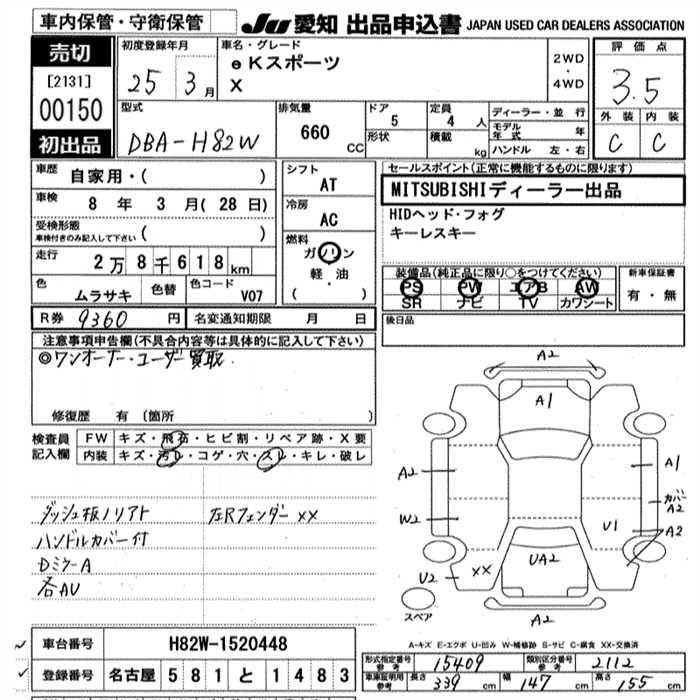 車内保管・守衛保管
JU 愛知 出品申込書 JAPAN USED CAR DEALERS ASSOCIATION
売切
[2131]
00150
初出品
初度登録年月
25 3月
車名・グレード
eKスポーツ
X
2WD
・
4WD
評価点
3.5
外装 内装
C C
型式
DBA-H82W
排気量
660 cc
ドア
5
形状
定員
4 人
積載 kg
ディーラー・並行
モデル年式 年
ハンドル 左・右
車歴
自家用・( )
車検
8 年 3 月( 28 日)
受検形態
車検付きのみ記入して下さい ( )
走行
2万8千618km
色
ムラサキ
色替
色コード
V07
シフト
AT
冷房
AC
燃料
ガソリン
・
軽・油
( )
R券 9360 円 名変通知期限 月 日
セールスポイント(正常に機能するものに限ります)
MITSUBISHIディーラー出品
HIDヘッド・フォグ
キーレスキー
装備品(純正品に限り○をつけてください)
PS PW エアB AW
SR ナビ TV カワシート
新車保証書
有・無
後日品
注意事項申告欄(不具合内容等は具体的に記入して下さい)
◎ワンオーナー・ユーザー買取
修復歴 有 (箇所 )
検査員記入欄
FW キズ・飛石・ヒビ割・リペア跡・X要
内装 キズ・汚レ・コゲ・穴・スレ・キレ・破レ
ダッシュ板ノリアト
ハンドルカバー付
DミラーA
各AU
左Rフェンダー XX
A2
A1
A2
A1
カバーA2
W2
U1
A2
UA2
U2
XX
A2
スペア
A-キズ E-エクボ U-凹み W-補修跡 S-サビ C-腐食 XX-交換済
車台番号 H82W-1520448
登録番号 名古屋 581 と 1483
形式指定番号 参考 15409 類別区分番号 参考 2112
車庫証明用 参考 長さ 339 cm 幅 147 cm 高さ 155 cm